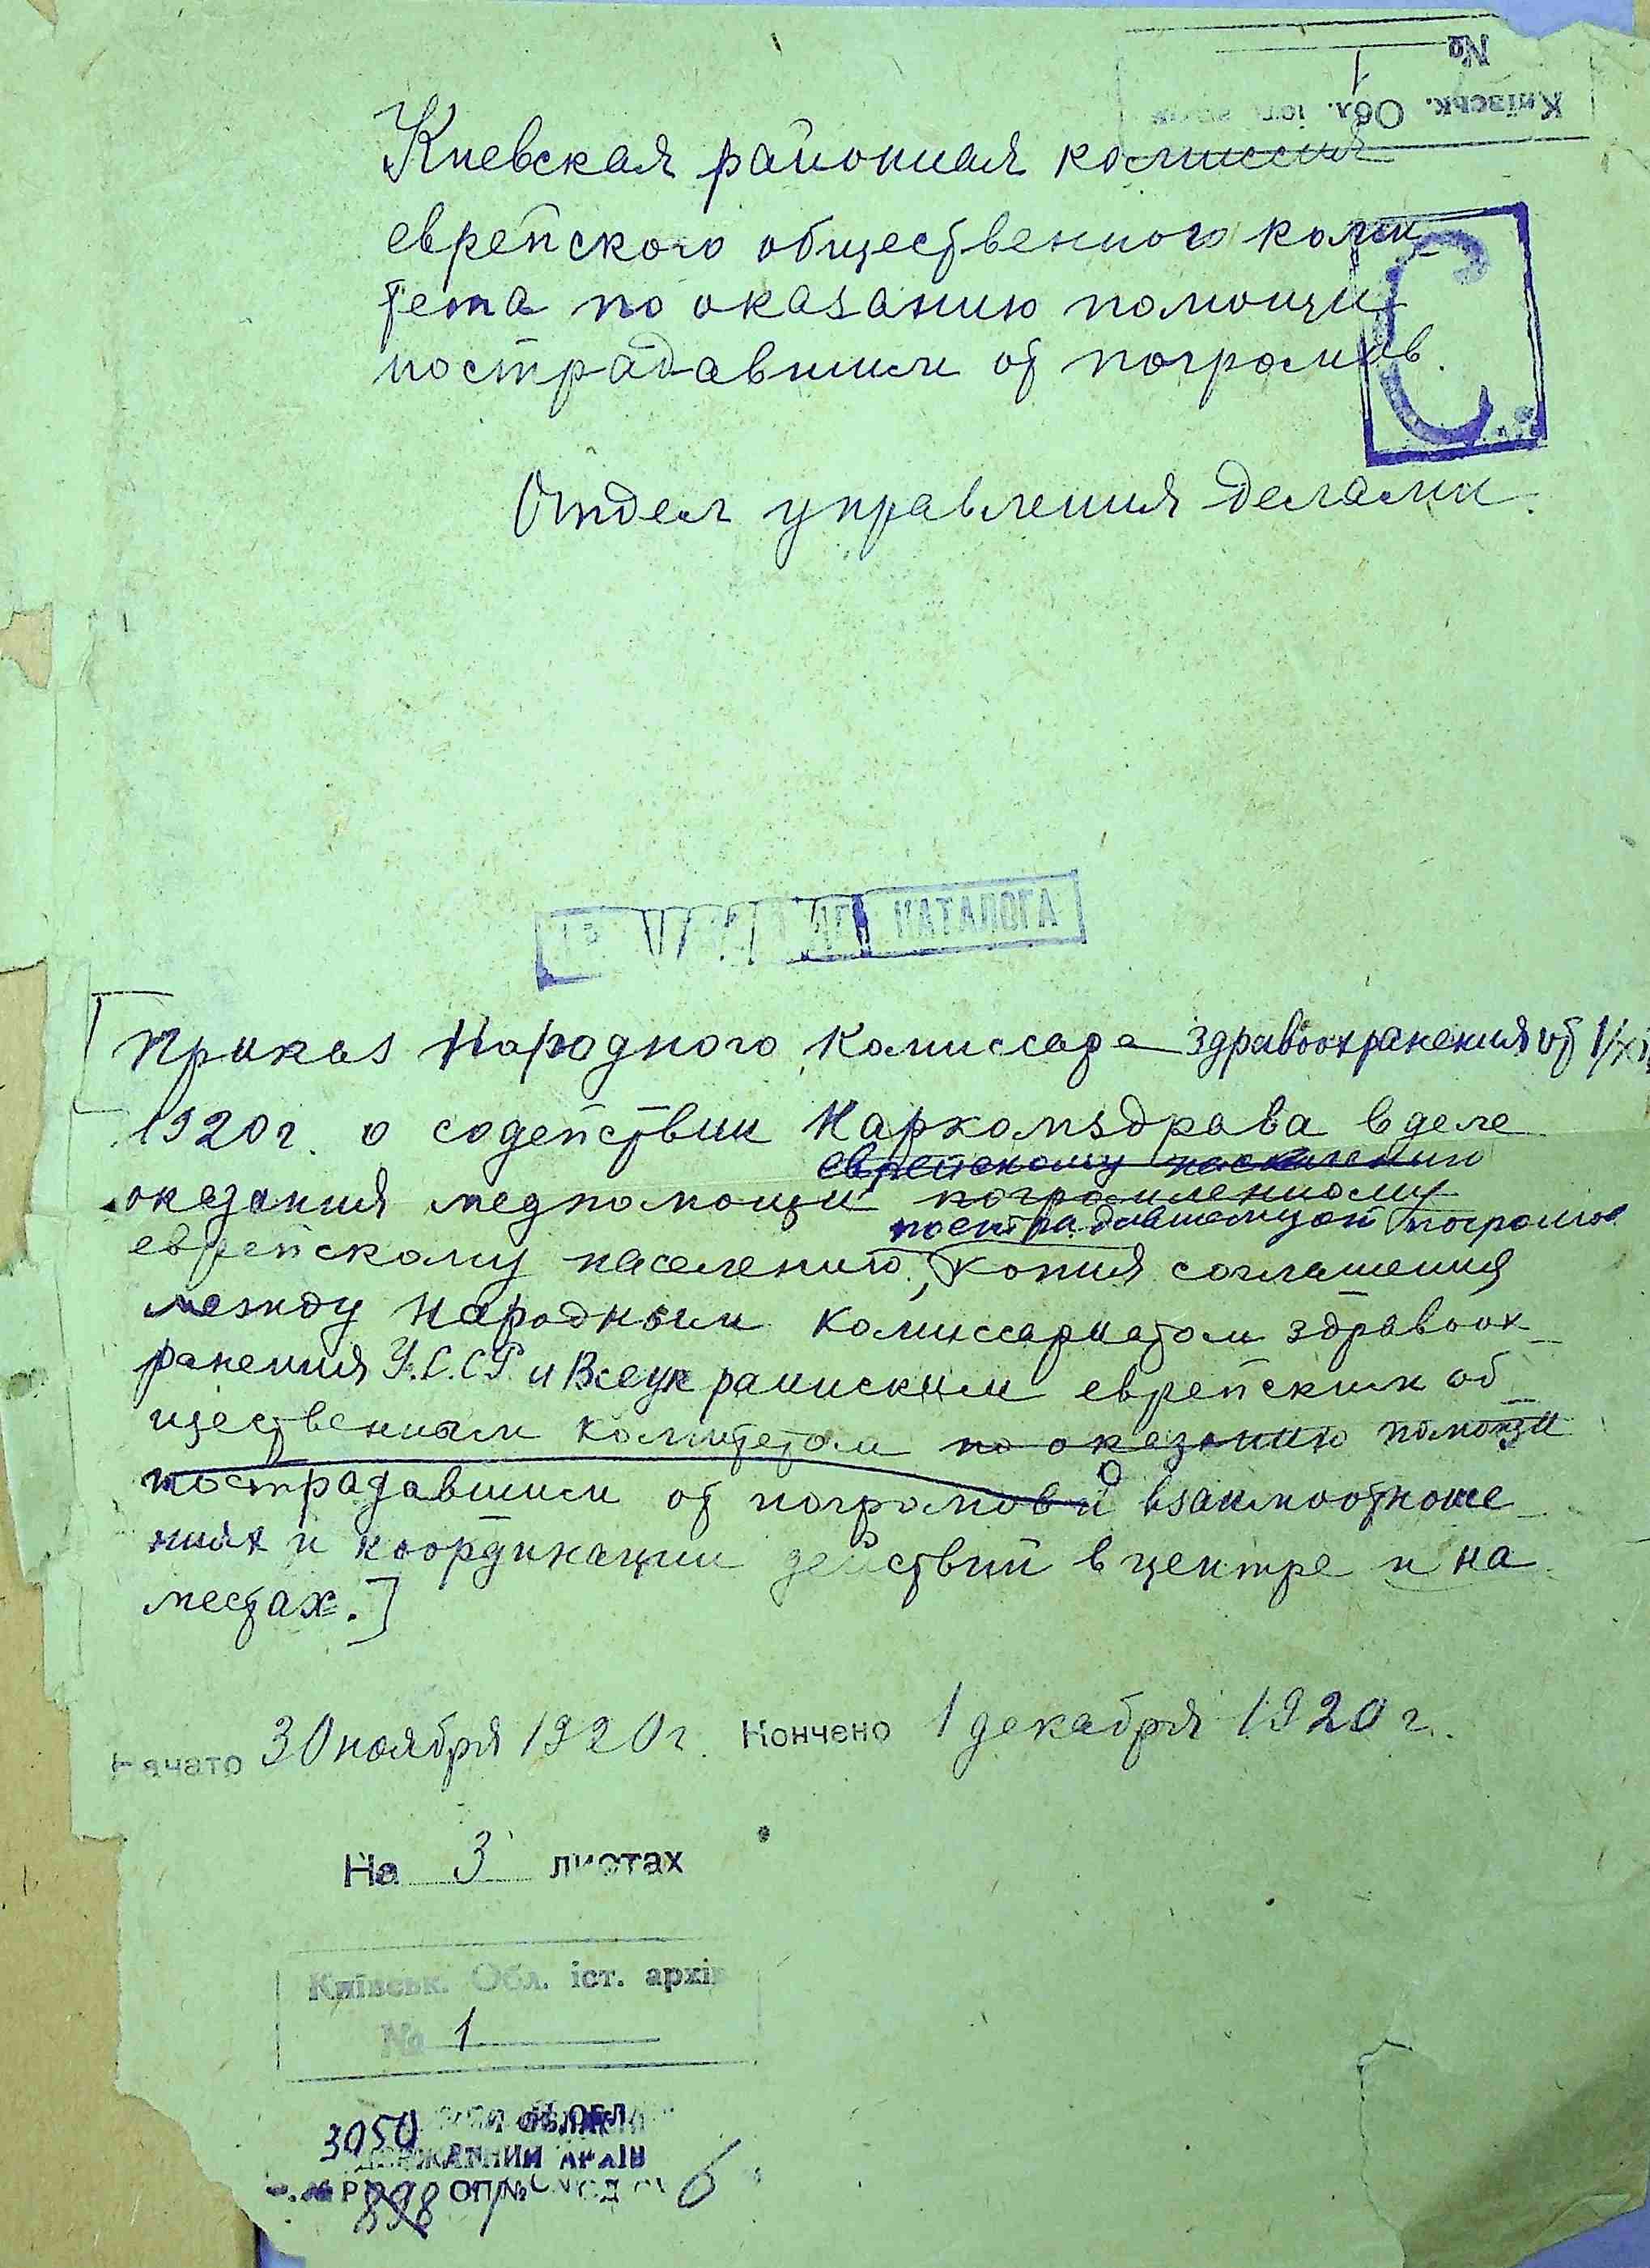 №
Київськ. Обл. іст.
Киевская районная комиссия
еврейского общественного коми
тета по оказанию помощи
пострадавшим от погромов.
С
Отдел управления делами.
КАТАЛОГА
[Приказ Народного Комиссара здравоохранения от 1/XII
1920 г. о содействии Наркомздрава в деле
еврейскому населению
оказания медпомощи погромленному
пострадавшему от погромов
еврейскому населению, копия соглашения
между Народным Комиссариатом здравоох-
ранения У.С.С.Р. и Всеукраинским еврейским об-
щественным комитетом по оказанию помощи
пострадавшим от погромов и о взаимоотноше-
ниях и координации действий в центре и на
местах.]
Начато 30 ноября 1920 г. Кончено 1 декабря 1920 г.
На 3 листах
Київськ. Обл. іст. архів
№ 1
3050 ОБЛ.
ДЕРЖАВНИЙ АРХІВ
Р 898 ОП № 1 6